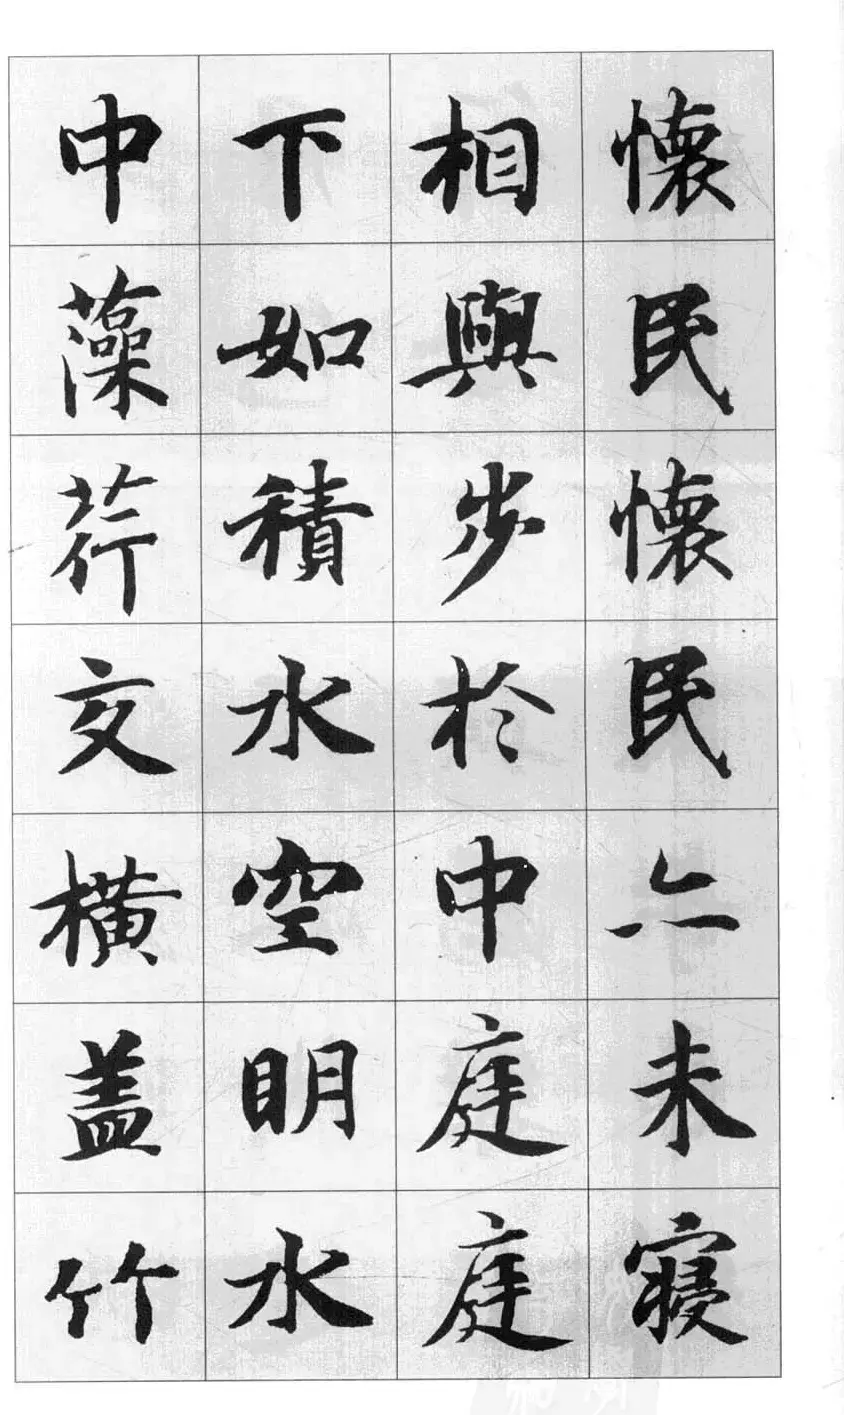 懷民懷民亦未寢
相與步於中庭庭
下如積水空明水
中藻荇交橫蓋竹